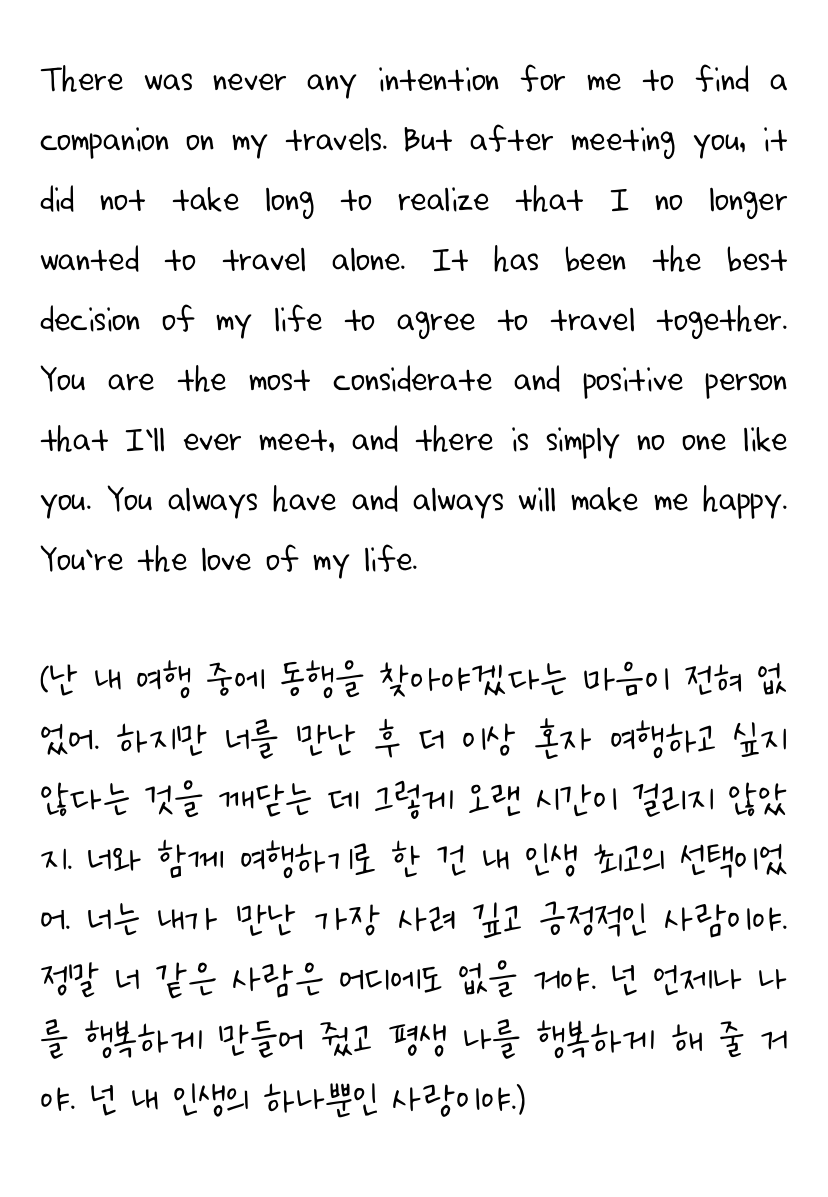 There was never any intention for me to find a
companion on my travels. But after meeting you, it
did not take long to realize that I no longer
wanted to travel alone. It has been the best
decision of my life to agree to travel together.
You are the most considerate and positive person
that I'll ever meet, and there is simply no one like
you. You always have and always will make me happy.
You're the love of my life.
(난 내 여행 중에 동행을 찾아야겠다는 마음이 전혀 없
었어. 하지만 너를 만난 후 더 이상 혼자 여행하고 싶지
않다는 것을 깨닫는 데 그렇게 오랜 시간이 걸리지 않았
지. 너와 함께 여행하기로 한 건 내 인생 최고의 선택이었
어. 너는 내가 만난 가장 사려 깊고 긍정적인 사람이야.
정말 너 같은 사람은 어디에도 없을 거야. 넌 언제나 나
를 행복하게 만들어 줬고 평생 나를 행복하게 해 줄 거
야. 넌 내 인생의 하나뿐인 사랑이야.)